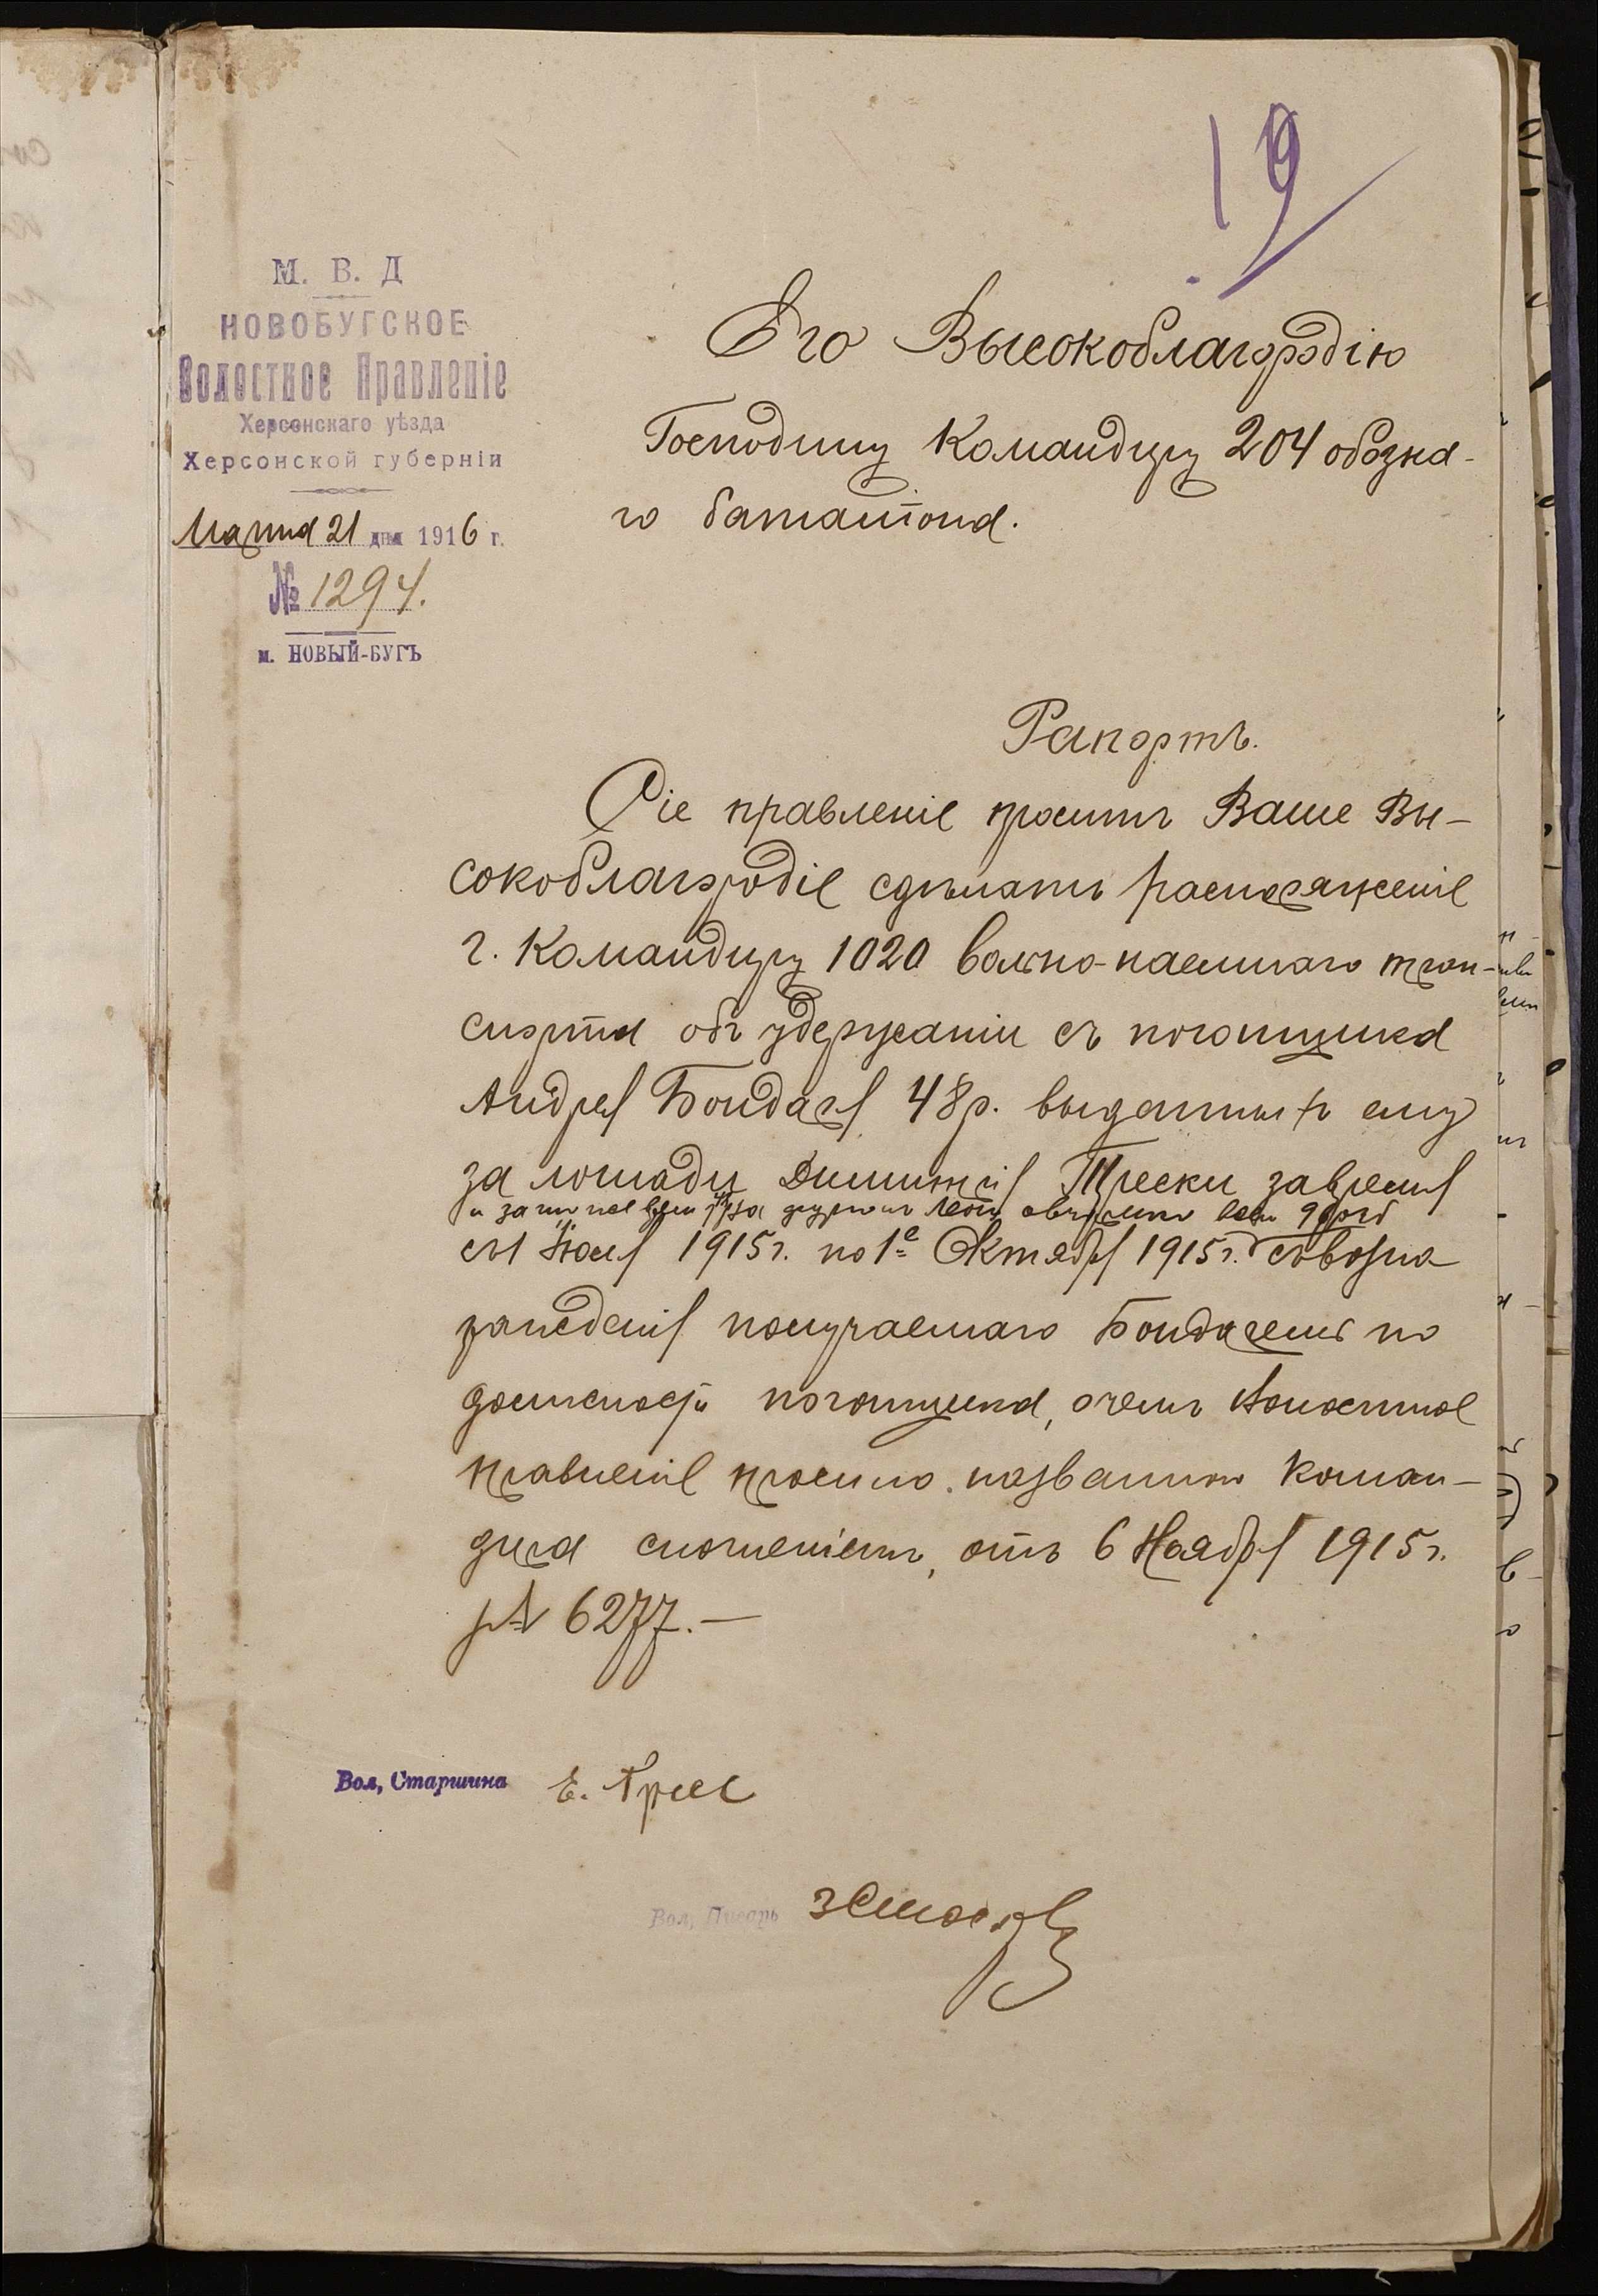 19
М. В. Д
НОВОБУГСКОЕ
Волостное Правленіе
Херсонскаго уѣзда
Херсонской губерніи
Марта 21 дня 1916 г.
№ 1294.
м. НОВЫЙ-БУГЪ
Его Высокоблагородію
Господину Командиру 204 обозна-
го баталіона.
Рапортъ.
Сіе правленіе проситъ Ваше Вы-
сокоблагородіе сдѣлать распоряженіе
г. Командиру 1020 вольно-наемнаго тран-
спорта объ удержаніи съ погонщика
Андрея Бондаря 48 р. выданныхъ ему
за лошадь Димитрія Трески за время
и за то же время за другую
съ 1 Іюля 1915 г. по 1е Октября 1915 г.
получаемаго Бондаремъ по
должности погонщика, о чемъ Волостное
правленіе просило названнаго Коман-
дира сношеніемъ, отъ 6 Ноября 1915 г.
№ 6277.—
Вол, Старшина Е. Трес
Вол, Писарь